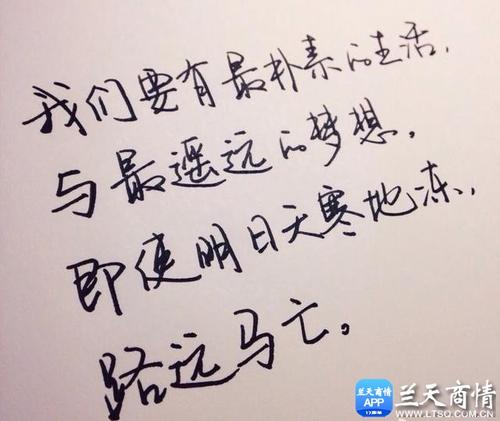 我们要有最朴素的生活,
与最遥远的梦想,
即使明日天寒地冻,
路远马亡。
兰天商情
APP
兰天商情
WWW.LTSQ.COM.CN